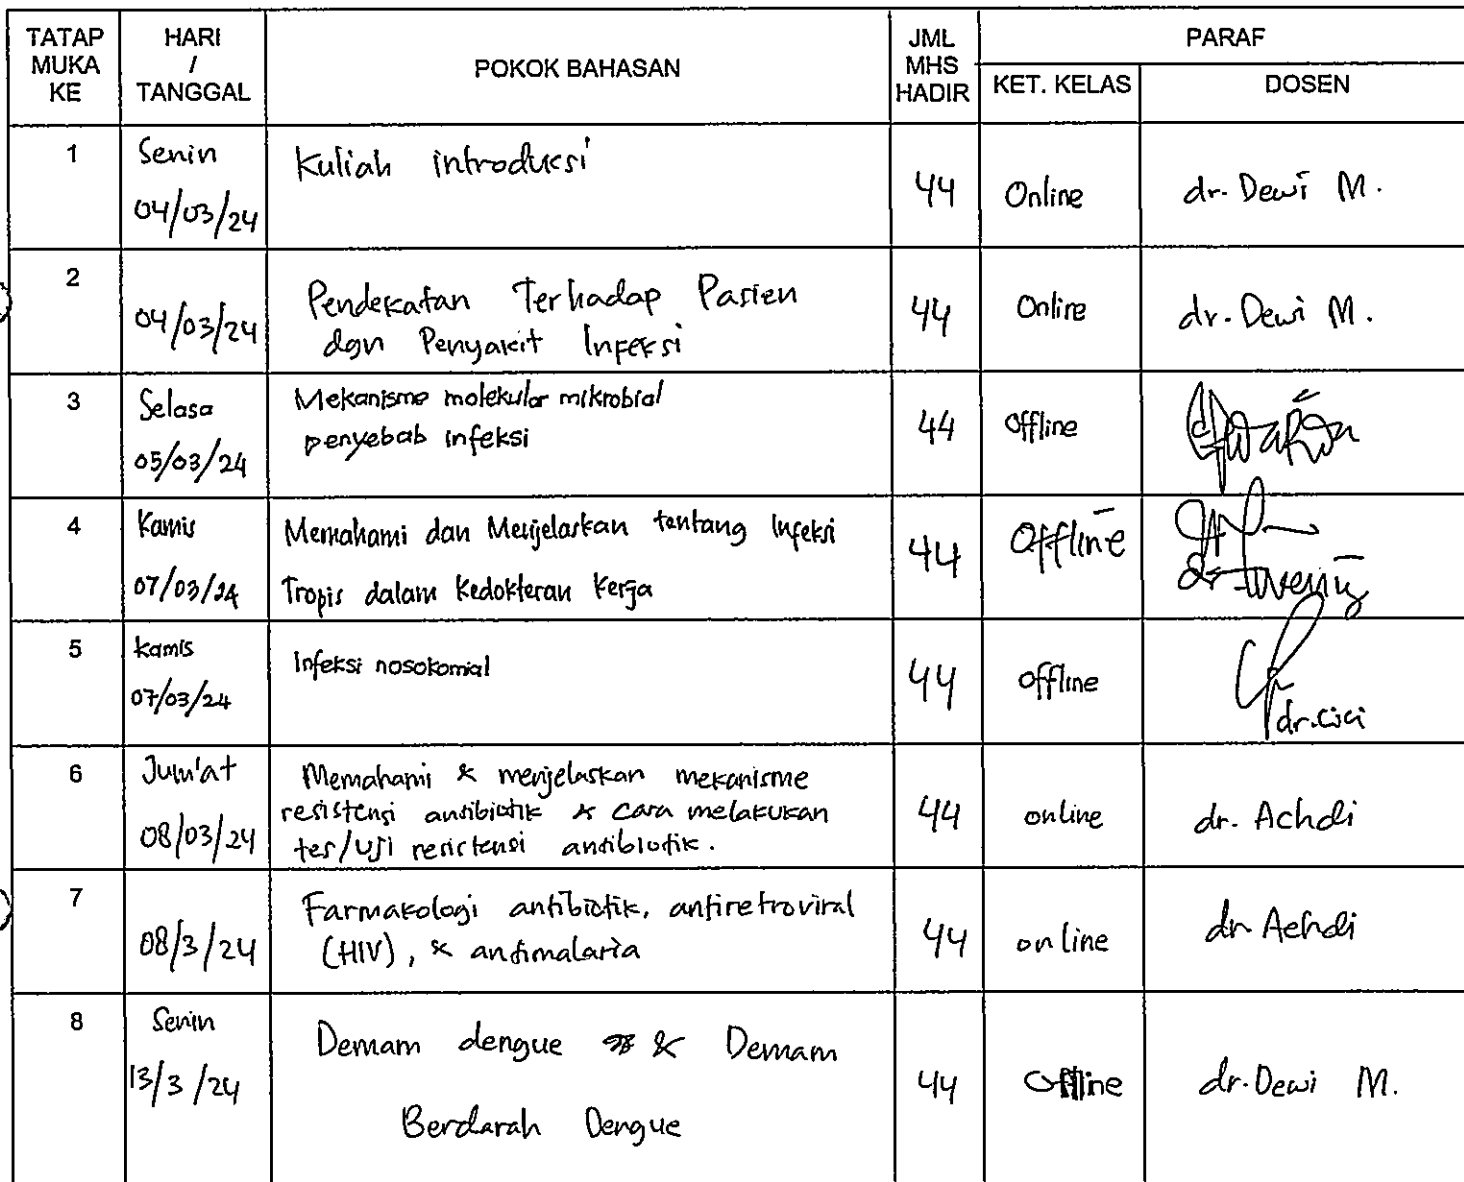 TATAP MUKA KE HARI / TANGGAL POKOK BAHASAN JML MHS HADIR PARAF
KET. KELAS DOSEN
1 Senin 04/03/24 Kuliah introduksi 44 Online dr. Dewi M.
2 04/03/24 Pendekatan Terhadap Pasien
dgn Penyakit Infeksi 44 Online dr. Dewi M.
3 Selasa 05/03/24 Mekanisme molekular mikrobial
penyebab infeksi 44 offline
4 Kamis 07/03/24 Memahami dan Menjelaskan tentang Infeksi
Tropis dalam Kedokteran Kerja 44 Offline
5 kamis 07/03/24 Infeksi nosokomial 44 offline dr. Cici
6 Jum'at 08/03/24 Memahami & menjelaskan mekanisme
resistensi antibiotik & cara melakukan
tes/uji resistensi antibiotik. 44 online dr. Achdi
7 08/3/24 Farmakologi antibiotik, antiretroviral
(HIV), & antimalaria 44 online dr Achdi
8 Senin 13/3/24 Demam dengue & Demam
Berdarah Dengue 44 Offline dr. Dewi M.